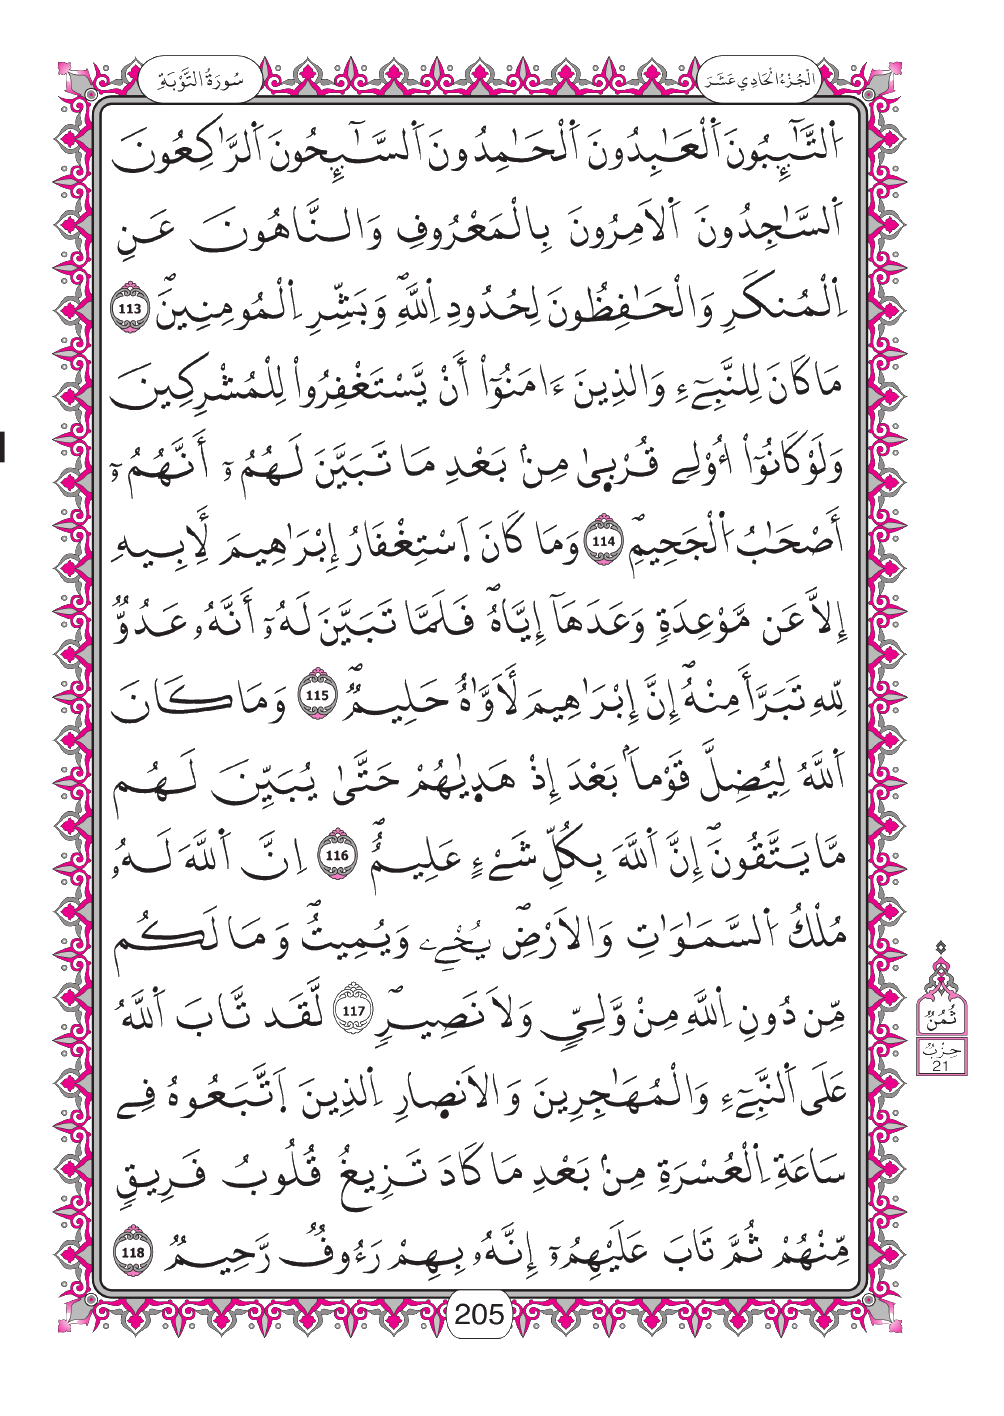 الْجُزْءُ الْحَادِي عَشَرَ
سُورَةُ التَّوْبَةِ
اَ۬لتَّٰٓئِبُونَ اَ۬لْعَٰبِدُونَ اَ۬لْحَٰمِدُونَ اَ۬لسَّٰٓئِحُونَ اَ۬لرَّٰكِعُونَ
اَ۬لسَّٰجِدُونَ اَ۬لَامِرُونَ بِالْمَعْرُوفِ وَالنَّاهُونَ عَنِ
اِ۬لْمُنكَرِ وَالْحَٰفِظُونَ لِحُدُودِ اِ۬للَّهِۖ وَبَشِّرِ اِ۬لْمُومِنِينَۖ 113
مَا كَانَ لِلنَّبِےٓءِ وَالذِينَ ءَامَنُوٓاْ أَنْ يَّسْتَغْفِرُواْ لِلْمُشْرِكِينَ
وَلَوْ كَانُوٓاْ أُوْلِے قُرْب۪يٰ مِنۢ بَعْدِ مَا تَبَيَّنَ لَهُمُۥٓ أَنَّهُمُۥٓ
أَصْحَٰبُ اُ۬لْجَحِيمِۖ 114 وَمَا كَانَ اَ۪سْتِغْفَارُ إِبْرَٰهِيمَ لِأَبِيهِ
إِلَّا عَن مَّوْعِدَةٖ وَعَدَهَآ إِيَّاهُۖ فَلَمَّا تَبَيَّنَ لَهُۥٓ أَنَّهُۥ عَدُوّٞ
لِّلهِ تَبَرَّأَ مِنْهُۖ إِنَّ إِبْرَٰهِيمَ لَأَوَّٰهٌ حَلِيمٞۖ 115 وَمَا كَانَ
اَ۬للَّهُ لِيُضِلَّ قَوْماَۢ بَعْدَ إِذْ هَد۪يٰهُمْ حَتَّىٰ يُبَيِّنَ لَهُم
مَّا يَتَّقُونَۖ إِنَّ اَ۬للَّهَ بِكُلِّ شَےْءٍ عَلِيمٌۖ 116 اِنَّ اَ۬للَّهَ لَهُۥ
مُلْكُ اُ۬لسَّمَٰوَٰتِ وَالَارْضِۖ يُحْيِۦ وَيُمِيتُۖ وَمَا لَكُم
مِّن دُونِ اِ۬للَّهِ مِنْ وَّلِيّٖ وَلَا نَصِيرٖۖ 117 لَّقَد تَّابَ اَ۬للَّهُ
عَلَى اَ۬لنَّبِےٓءِ وَالْمُهَٰجِرِينَ وَالَانص۪ارِ اِ۬لذِينَ اَ۪تَّبَعُوهُ فِے
سَاعَةِ اِ۬لْعُسْرَةِ مِنۢ بَعْدِ مَا كَادَ تَزِيغُ قُلُوبُ فَرِيقٖ
مِّنْهُمْ ثُمَّ تَابَ عَلَيْهِمُۥٓ إِنَّهُۥ بِهِمْ رَءُوفٞ رَّحِيمٞ 118
ثُمُنٌ
حِزْبُ
21
205